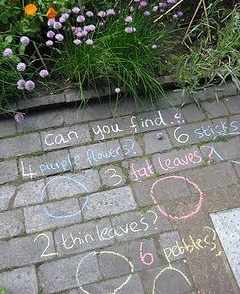 can you find..
6 sticks
4 purple flowers?
3 fat leaves?
2 thin leaves?
6 pebbles?